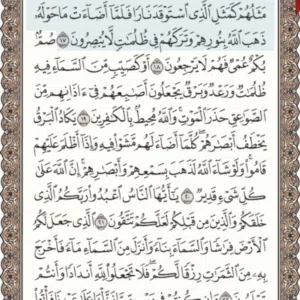 مَثَلُهُمْ كَمَثَلِ ٱلَّذِى ٱسْتَوْقَدَ نَارًا فَلَمَّآ أَضَآءَتْ مَا حَوْلَهُۥ
ذَهَبَ ٱللَّهُ بِنُورِهِمْ وَتَرَكَهُمْ فِى ظُلُمَٰتٍ لَّا يُبْصِرُونَ ١٧ صُمٌّۢ
بُكْمٌ عُمْىٌ فَهُمْ لَا يَرْجِعُونَ ١٨ أَوْ كَصَيِّبٍ مِّنَ ٱلسَّمَآءِ فِيهِ
ظُلُمَٰتٌ وَرَعْدٌ وَبَرْقٌ يَجْعَلُونَ أَصَٰبِعَهُمْ فِىٓ ءَاذَانِهِم مِّنَ
ٱلصَّوَٰعِقِ حَذَرَ ٱلْمَوْتِ وَٱللَّهُ مُحِيطٌۢ بِٱلْكَٰفِرِينَ ١٩ يَكَادُ ٱلْبَرْقُ
يَخْطَفُ أَبْصَٰرَهُمْ كُلَّمَآ أَضَآءَ لَهُم مَّشَوْا۟ فِيهِ وَإِذَآ أَظْلَمَ عَلَيْهِمْ
قَامُوا۟ وَلَوْ شَآءَ ٱللَّهُ لَذَهَبَ بِسَمْعِهِمْ وَأَبْصَٰرِهِمْ إِنَّ ٱللَّهَ عَلَىٰ
كُلِّ شَىْءٍ قَدِيرٌ ٢٠ يَٰٓأَيُّهَا ٱلنَّاسُ ٱعْبُدُوا۟ رَبَّكُمُ ٱلَّذِى
خَلَقَكُمْ وَٱلَّذِينَ مِن قَبْلِكُمْ لَعَلَّكُمْ تَتَّقُونَ ٢١ ٱلَّذِى جَعَلَ لَكُمُ
ٱلْأَرْضَ فِرَٰشًا وَٱلسَّمَآءَ بِنَآءً وَأَنزَلَ مِنَ ٱلسَّمَآءِ مَآءً فَأَخْرَجَ
بِهِۦ مِنَ ٱلثَّمَرَٰتِ رِزْقًا لَّكُمْ فَلَا تَجْعَلُوا۟ لِلَّهِ أَندَادًا وَأَنتُمْ